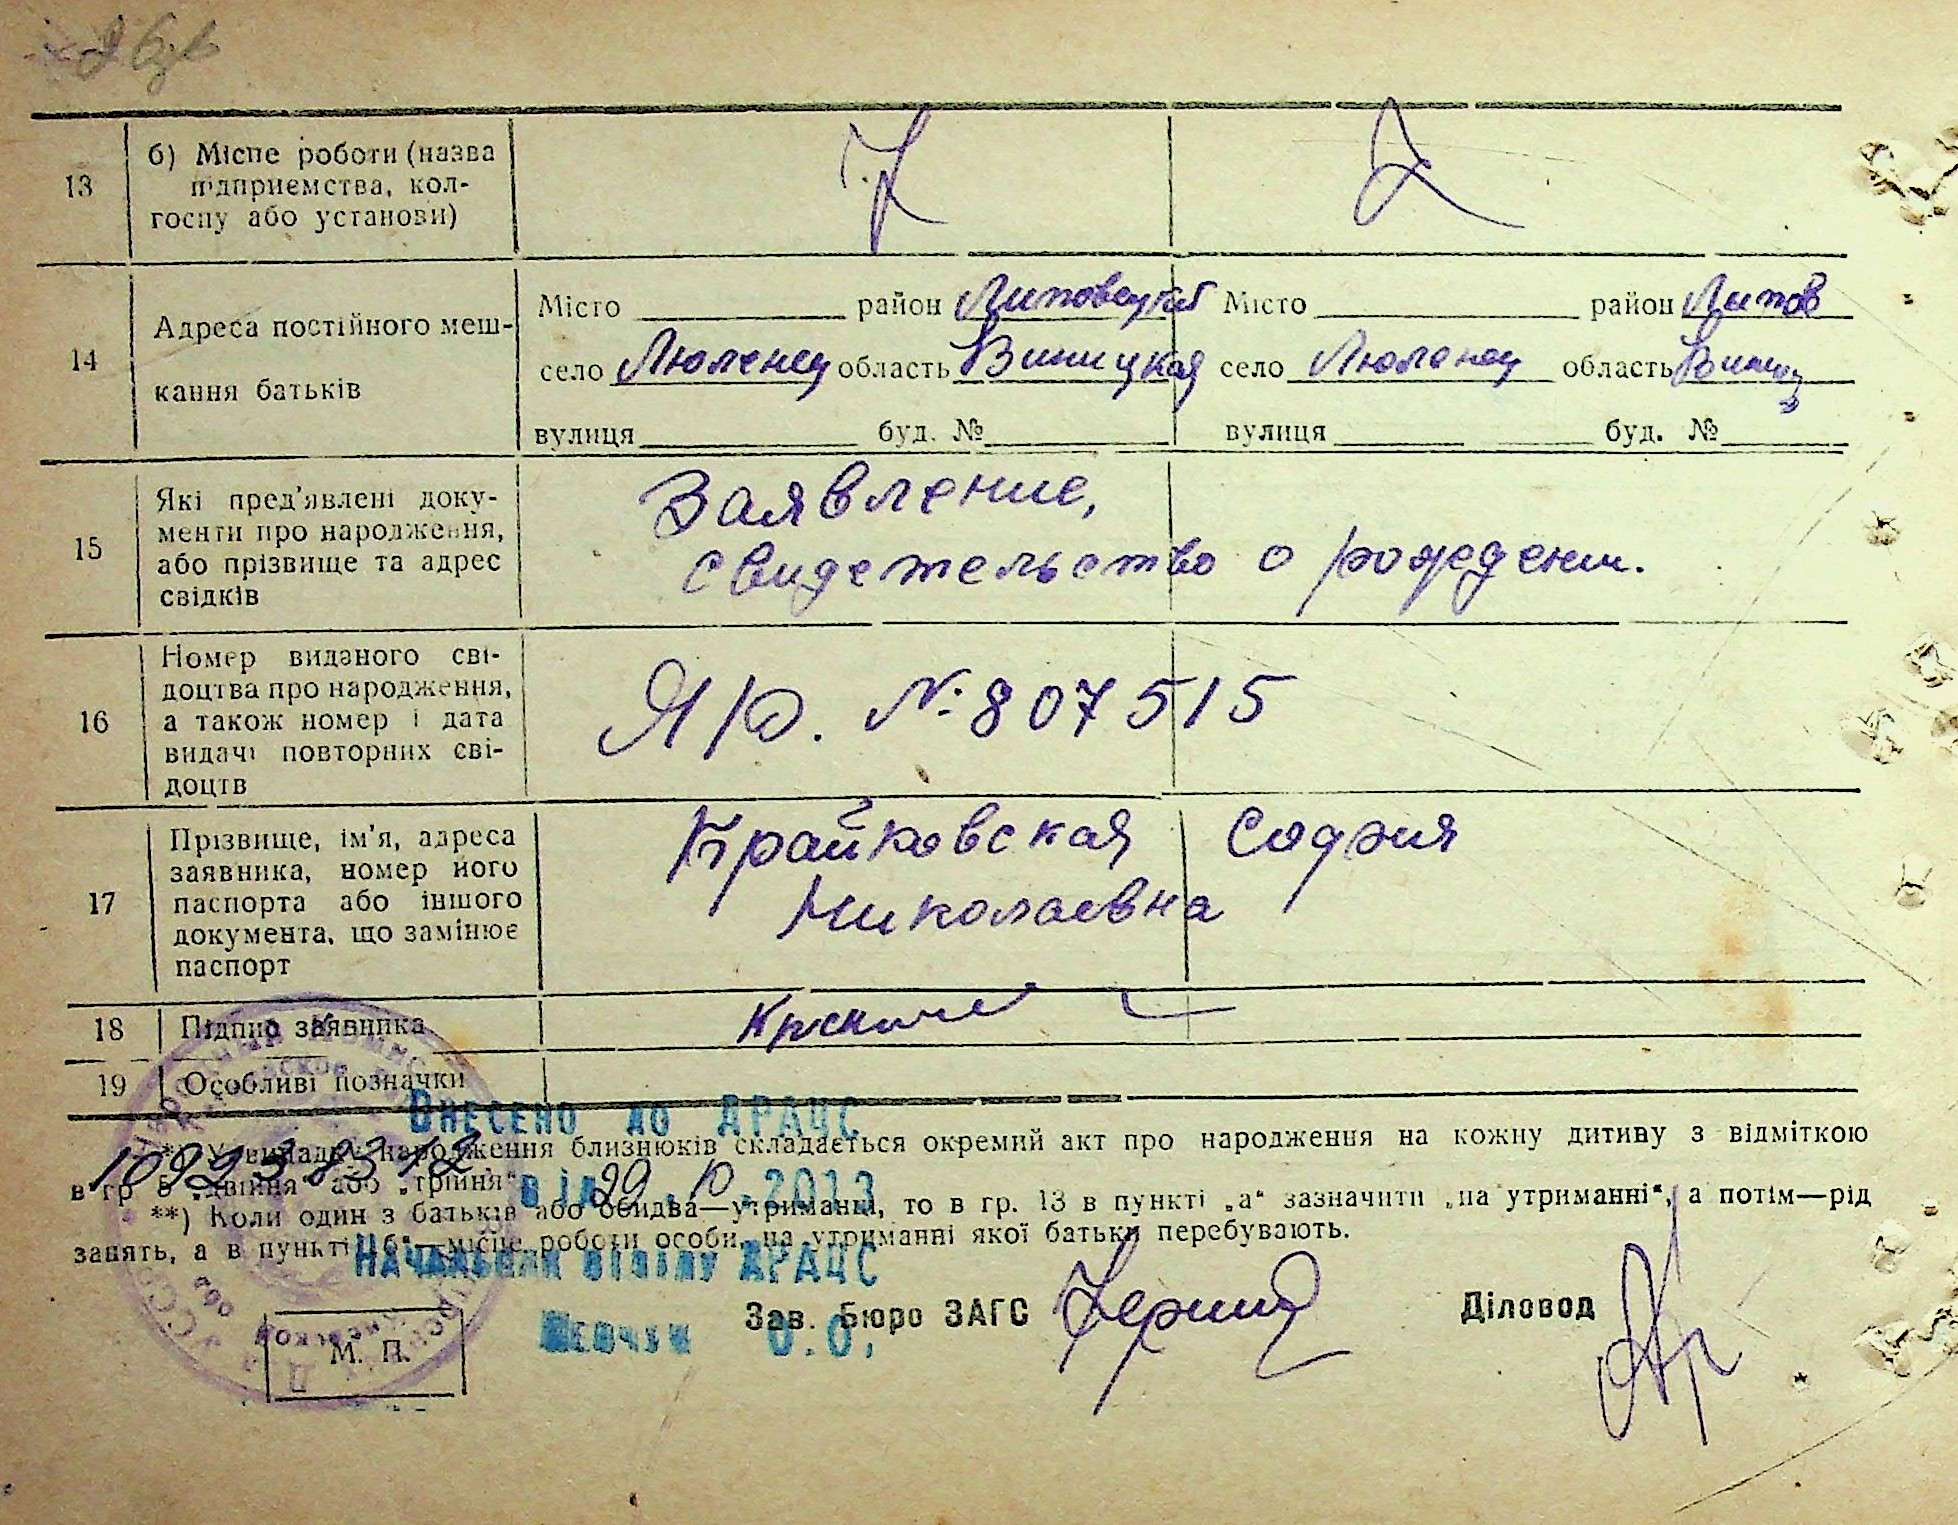 13
б) Місце роботи (назва
підприємства, кол-
госпу або установи)
14
Адреса постійного меш-
кання батьків
Місто район Липовецкий Місто район Липов
село Люленец область Виницкая село Люленец область Виниц
вулиця буд. № вулиця буд. №
15
Які пред'явлені доку-
менти про народження,
або прізвище та адрес
свідків
Заявление,
свидетельство о рождении.
16
Номер виданого сві-
доцтва про народження,
а також номер і дата
видачі повторних сві-
доцтв
ЯЮ. №807515
17
Прізвище, ім'я, адреса
заявника, номер його
паспорта або іншого
документа, що замінює
паспорт
Крайковская София
Николаевна
18 Підпис заявника
19 Особливі позначки
Внесено до ДРАЦС
*) У випадку народження близнюків складається окремий акт про народження на кожну дитину з відміткою
в гр 5 „двійня" або „трійня"
від 29.10.2013
**) Коли один з батьків або обидва—утриманці, то в гр. 13 в пункті „а" зазначити „на утриманні", а потім—рід
занять, а в пункті „б"—місце роботи особи, на утриманні якої батьки перебувають.
Начальник відділу ДРАЦС
Зав. Бюро ЗАГС Діловод
Шевчук О.О.
М. П.